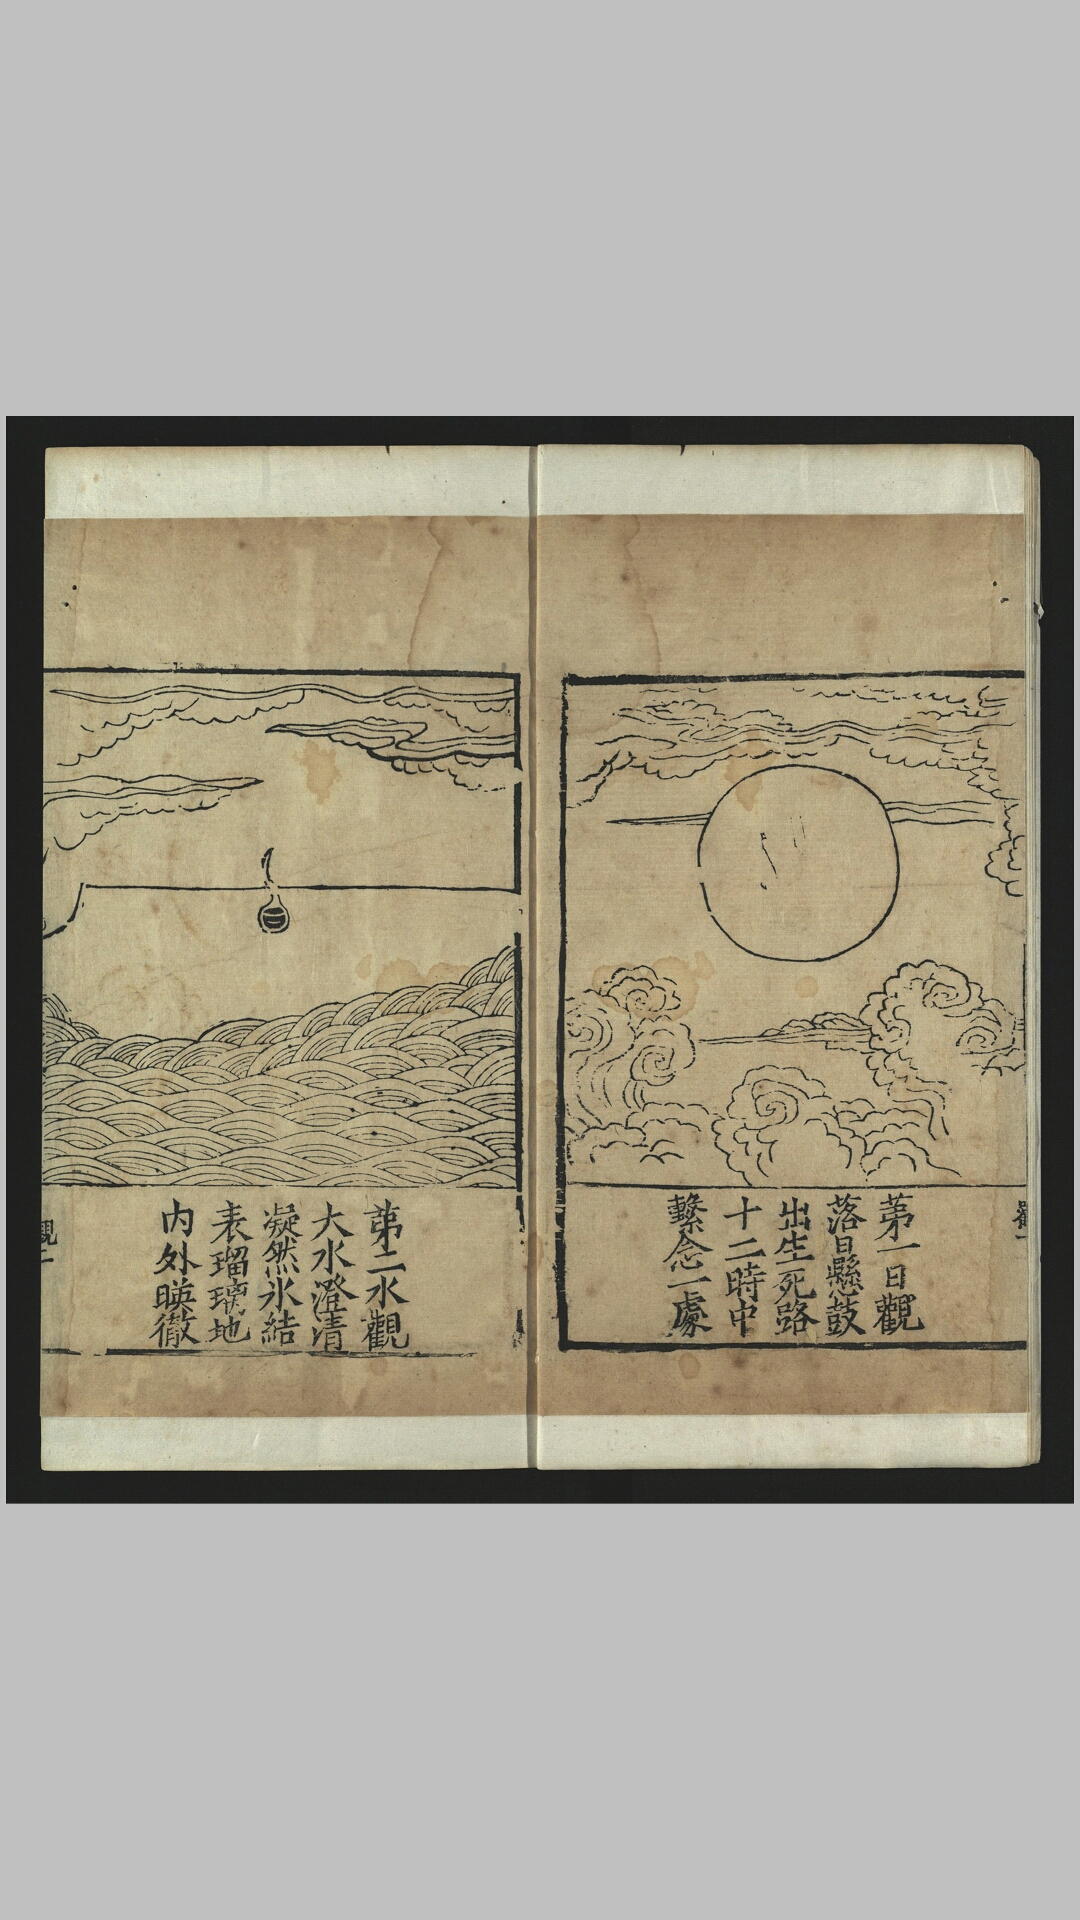 苐一日觀
落日懸鼓
出生死路
十二時中
繫念一處
苐二水觀
大水澄清
凝然氷結
表瑠璃地
内外暎徹
觀二